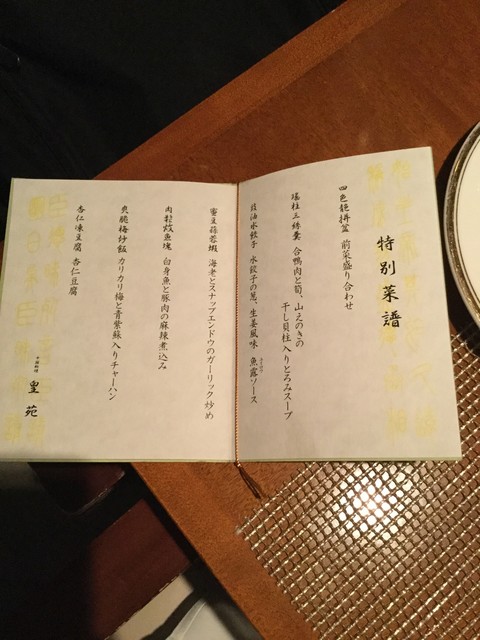 特別菜譜
四色龍拼盆 前菜盛り合わせ
瑤柱三絲羹 合鴨肉と筍、山えのきの
干し貝柱入りとろみスープ
豉油水餃子 水餃子の葱、生姜風味 魚露ソース
蜜豆蒜蓉蝦 海老とスナップエンドウのガーリック炒め
肉鬆炆魚塊 白身魚と豚肉の麻辣煮込み
爽脆梅炒飯 カリカリ梅と青紫蘇入りチャーハン
杏仁凍豆腐 杏仁豆腐
中国料理
皇苑